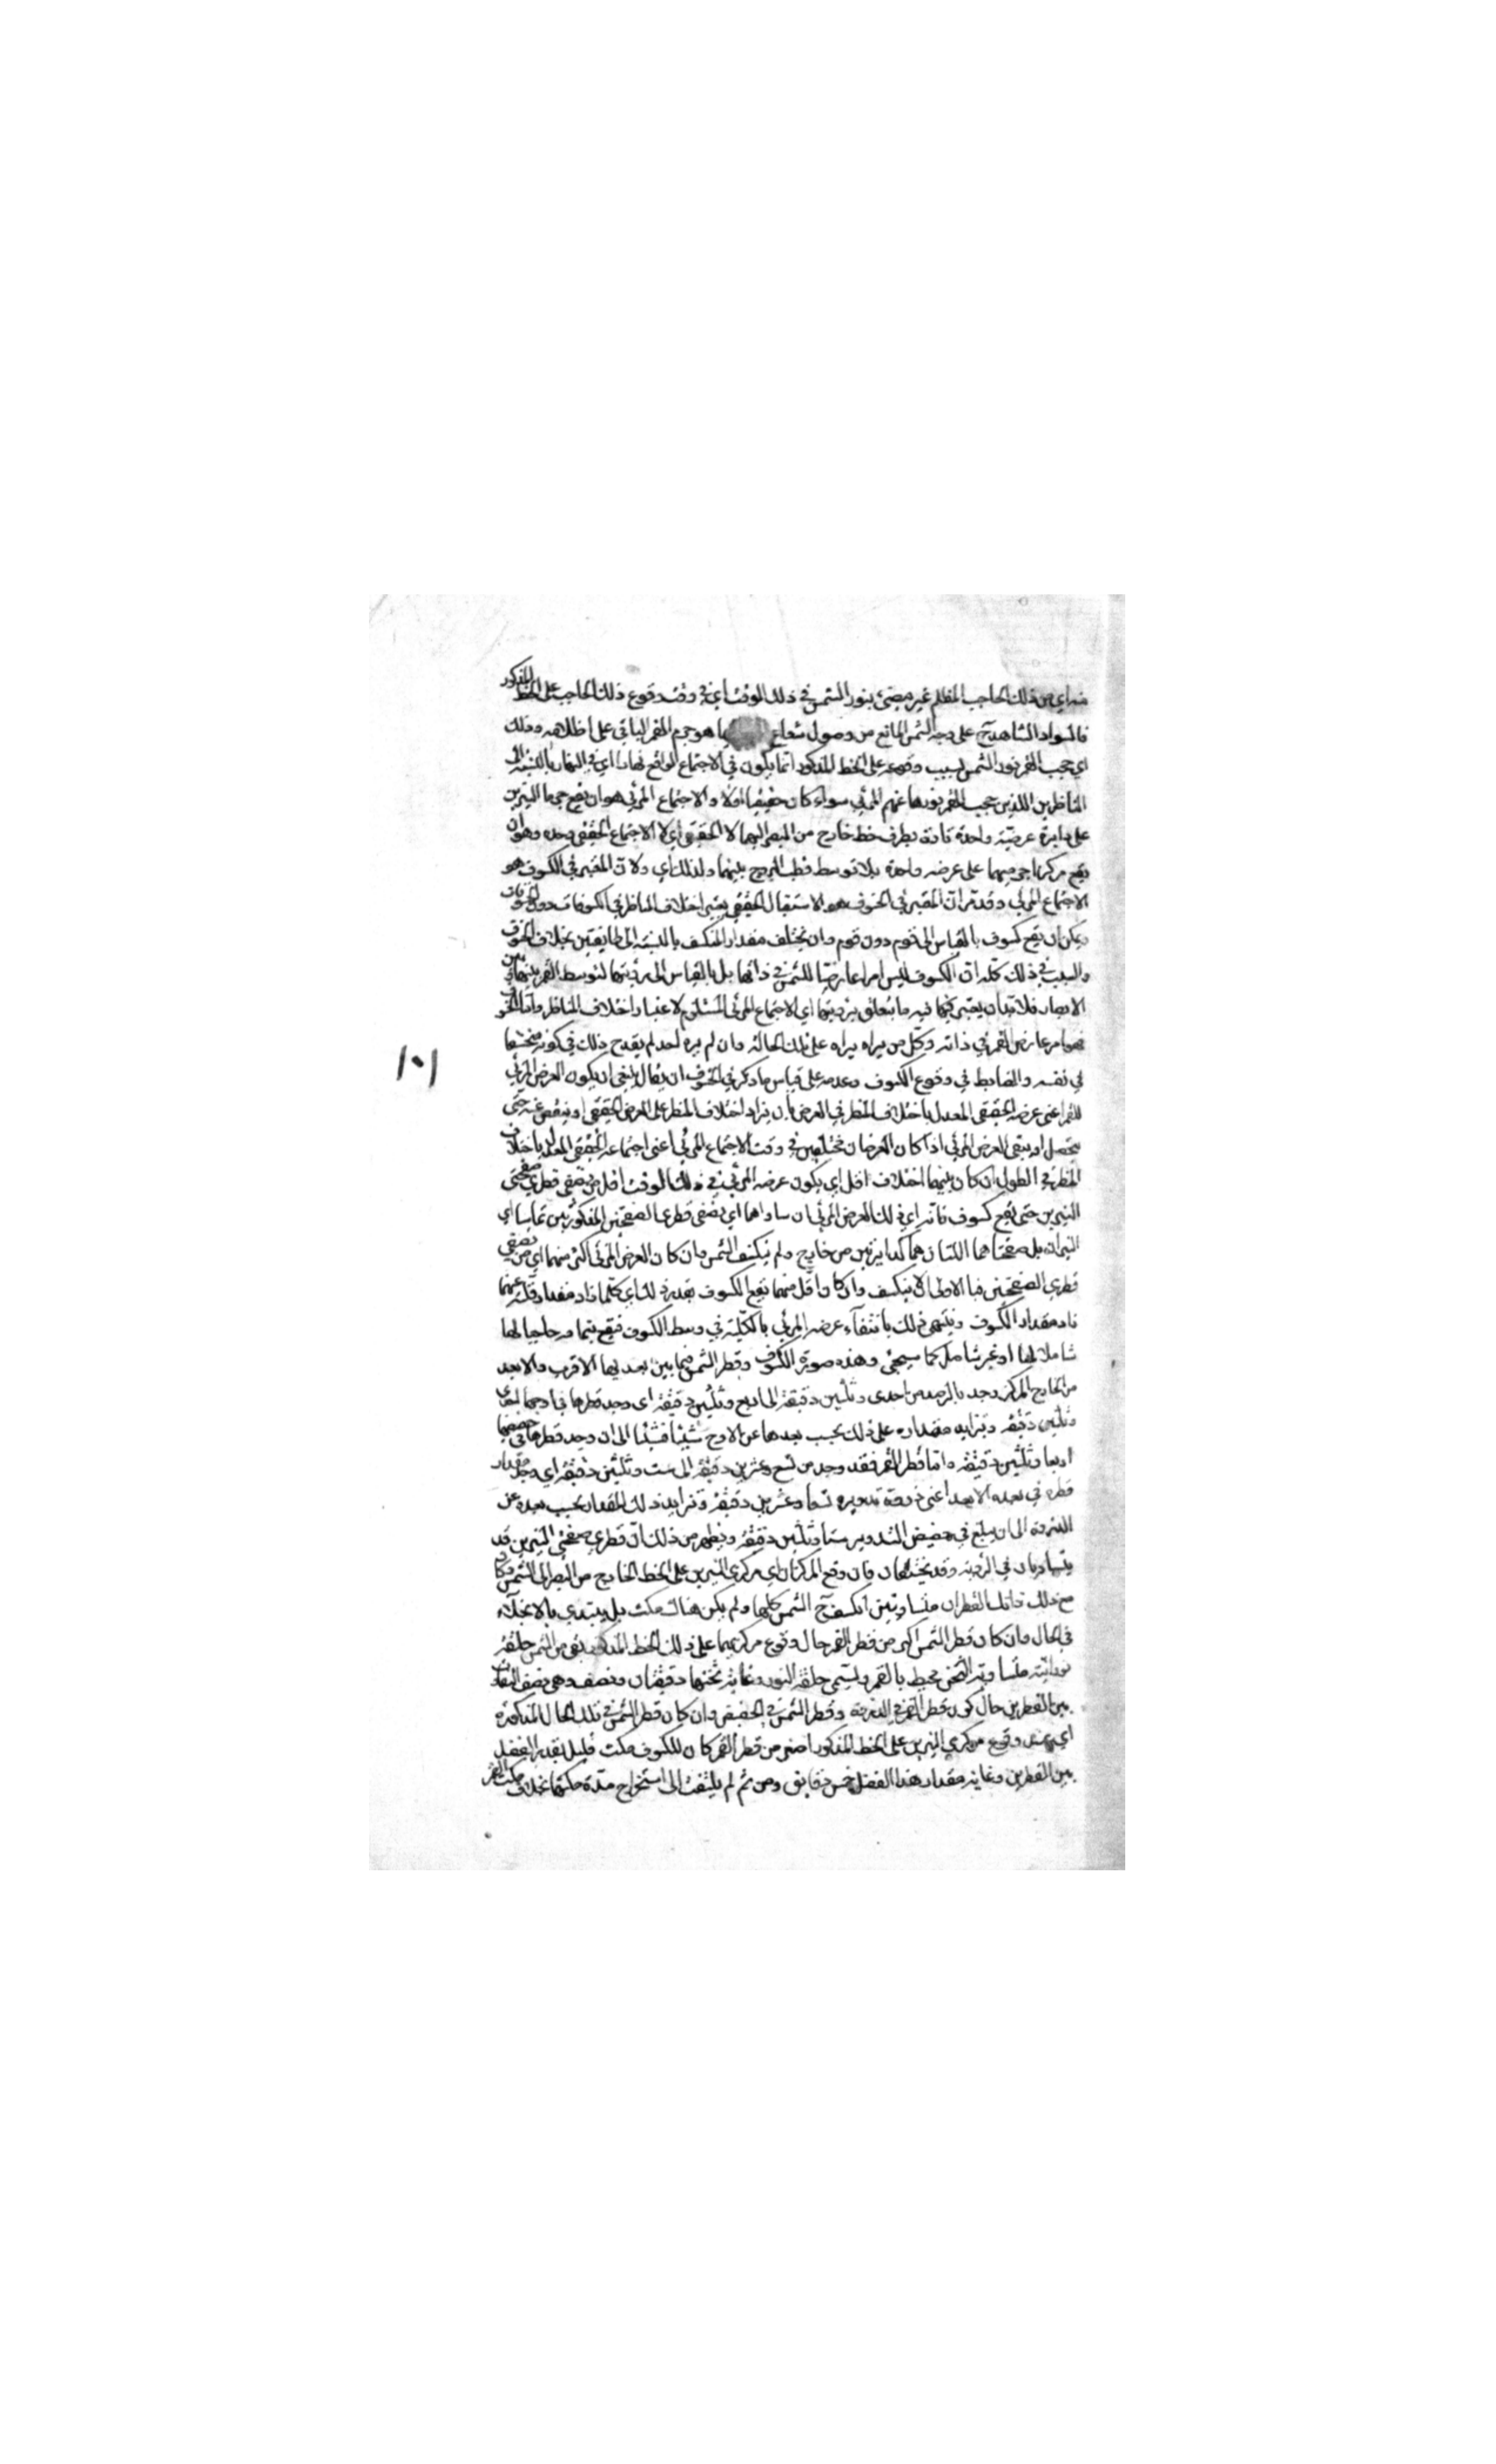 منه اي من ذلك الحاجب المظلم غير مضيئ بنور الشمس في ذلك الوقت اي في وقت وقوع ذلك الحاجب على الخط المذكور
فالسواد المشاهد ح على وجه الشمس المانع من وصول شعاع ها هو جرم القمر الباقي على اظلامه وذلك
اي حجب القمر نور الشمس بسبب وقوعه على الخط المذكور انما يكون في الاجتماع الواقع نهارا اي في النهار بالنسبة الى
الناظرين اللذين حجب القمر نورها عنهم المرئي سواء كان حقيقيا اولا والاجتماع المرئي هو ان يقع جرما النيرين
على دايرة عرضية واحدة مارة بطرف خط خارج من البصر اليهما لا الحقيقي اي لا الاجتماع الحقيقي وحده وهو ان
يقع مركزا جرميهما على عرضية واحدة بلا توسط قطب البروج بينهما ولذلك اي ولان المعتبر في الكسوف هو
الاجتماع المرئي وقد مر ان المعتبر في الخسوف هو الاستقبال الحقيقي يعتبر اختلاف المناظر في الكسوفات دون الخسوفات
ويمكن ان يقع كسوف بالقياس الى قوم دون قوم وان يختلف مقدار المنكسف بالنسبة الى طايفتين بخلاف الخسوف
والسبب في ذلك كله ان الكسوف ليس امرا عارضيا للشمس في ذاتها بل بالقياس الى رؤيتها لتوسط القمر بينها وبين
الابصار فلا بد ان يعتبر فيها فيه ما يتعلق برؤيتها اي الاجتماع المرئي المستلزم لاعتبار اختلاف المناظر واما الخسوف
فهو امر عارض للقمر في ذاته وكل من يراه يراه على تلك الحالة وان لم يره احد لم يقدح ذلك في كونه منخسفا
في نفسه والضابط في وقوع الكسوف وعدمه على قياس ما ذكر في الخسوف ان يقال ينبغي ان يكون العرض المرئي
للقمر اعني عرضه الحقيقي المعدل باختلاف المنظر في العرض بان يزاد اختلاف المنظر على العرض الحقيقي او ينقص عنه حتى
يحصل او يبقى العرض المرئي اذا كان العرضان مختلفين في وقت الاجتماع المرئي اعني اجتماعه الحقيقي المعدل باختلاف
المنظر في الطول ان كان بينهما اختلاف اقل اي يكون عرضه المرئي في ذلك الوقت اقل من نصفي قطري صفحتي
النيرين حتى يقع كسوف فانه اي ذلك العرض المرئي ان ساواهما اي نصفي قطري الصفحتين المذكورتين تماسا اي
النيران بل صفحتاهما اللتان هما كدايرتين من خارج ولم ينكسف الشمس وان كان العرض المرئي اكثر منهما اي من نصفي
قطري الصفحتين فبالاولى ان لا ينكسف وان كان اقل منهما يقع الكسوف بقدر ذلك اي كلما زاد مقدار قلته عنهما
زاد مقدار الكسوف وينتهي ذلك بانتفاء عرضه المرئي بالكلية في وسط الكسوف فيقع بتمامه حاجبا لها
شاملا لها او غير شامل كما سيجئ وهذه صورة الكسوف وقطر الشمس فيما بين بعديها الاقرب والابعد
من الخارج المركز وجد بالرصد من احدى وثلثين دقيقة الى اربع وثلثين دقيقة اي وجد قطرها في اوجها احدى
وثلثين دقيقة ويتزايد مقداره على ذلك بحسب بعدها عن الاوج شيئا فشيئا الى ان وجد قطرها في حضيضها
اربعا وثلثين دقيقة واما قطر القمر فقد وجد من تسع وعشرين دقيقة الى ست وثلثين دقيقة اي وجد مقدار
قطره في بعده الابعد اعني ذروة تدويره تسعا وعشرين دقيقة وتزايد ذلك المقدار بحسب بعده عن
الذروة الى ان يبلغ في حضيض التدوير ستا وثلثين دقيقة ويظهر من ذلك ان قطري صفحتي النيرين قد
يتساويان في الرؤية وقد يختلفان فان وقع المركزان اي مركزي النيرين على الخط الخارج من البصر الى الشمس وكان
مع ذلك القطران متساويين انكسف ح الشمس كلها ولم يكن هناك مكث بل يبتدي بالانجلاء
في الحال وان كان قطر الشمس اكبر من قطر القمر حال وقوع مركزيهما على ذلك الخط المذكور بقي من الشمس حلقة
نورانية متساوية الثخن محيط بالقمر ويسمى حلقة النور وغاية ثخنها دقيقتان ونصف وهي نصف التفاوت
بين القطرين حال كون قطر القمر في الذروة وقطر الشمس في الحضيض وان كان قطر الشمس في تلك الحال المذكورة
اي وقوع مركزي النيرين على الخط المذكور اصغر من قطر القمر كان للكسوف مكث قليل بقدر الفضل
بين القطرين وغاية مقدار هذا الفضل خمس دقايق ومن ثم لم يلتفت الى استخراج مدة مكثها بخلاف مكث القمر
١٠١